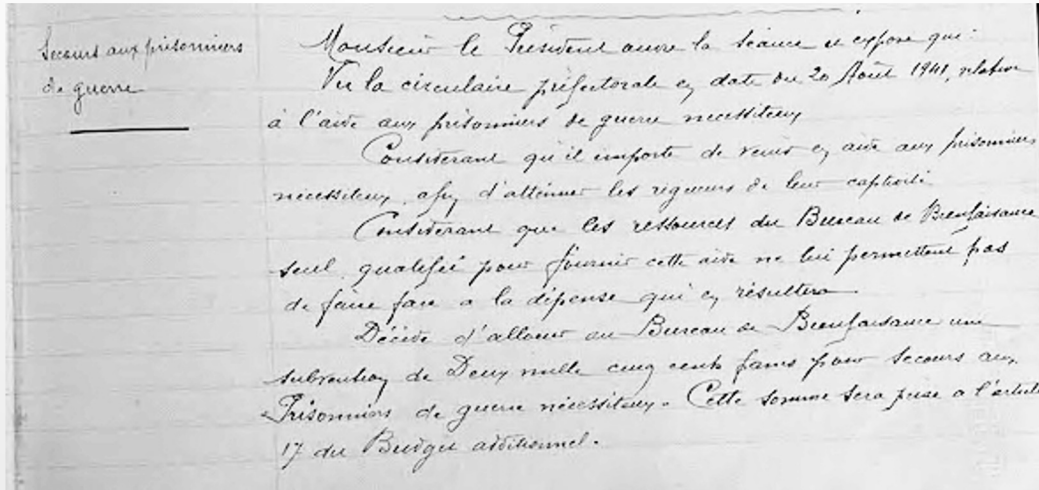 Secours aux prisonniers
de guerre
Monsieur le Président ouvre la séance et expose que :
Vu la circulaire préfectorale en date du 20 Août 1941, relative
à l'aide aux prisonniers de guerre nécessiteux
Considérant qu'il importe de venir en aide aux prisonniers
nécessiteux, afin d'atténuer les rigueurs de leur captivité
Considérant que les ressources du Bureau de Bienfaisance
seul qualifié pour fournir cette aide ne lui permettent pas
de faire face a la dépense qui en résultera
Décide d'allouer au Bureau de Bienfaisance une
subvention de Deux mille cinq cents francs pour secours aux
Prisonniers de guerre nécessiteux. Cette somme sera prise a l'article
17 du Budget additionnel.